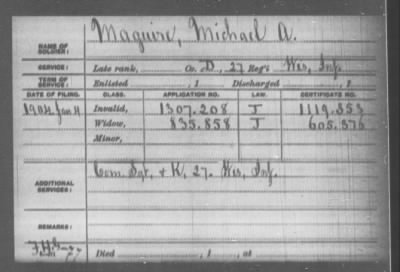 NAME OF SOLDIER: Maguire, Michael A.
SERVICE: Late rank, Co. D, 27 Reg't Wis, Inf.
TERM OF SERVICE: Enlisted , 1 Discharged , 1
DATE OF FILING. CLASS. APPLICATION NO. LAW. CERTIFICATE NO.
1904 Jan 4 Invalid, 1307.208 J 1119.353
Widow, 835.858 J 605.376
Minor,
ADDITIONAL SERVICES: Com. Sgt, & K, 27. Wis, Inf.
REMARKS:
Died , 1 , at